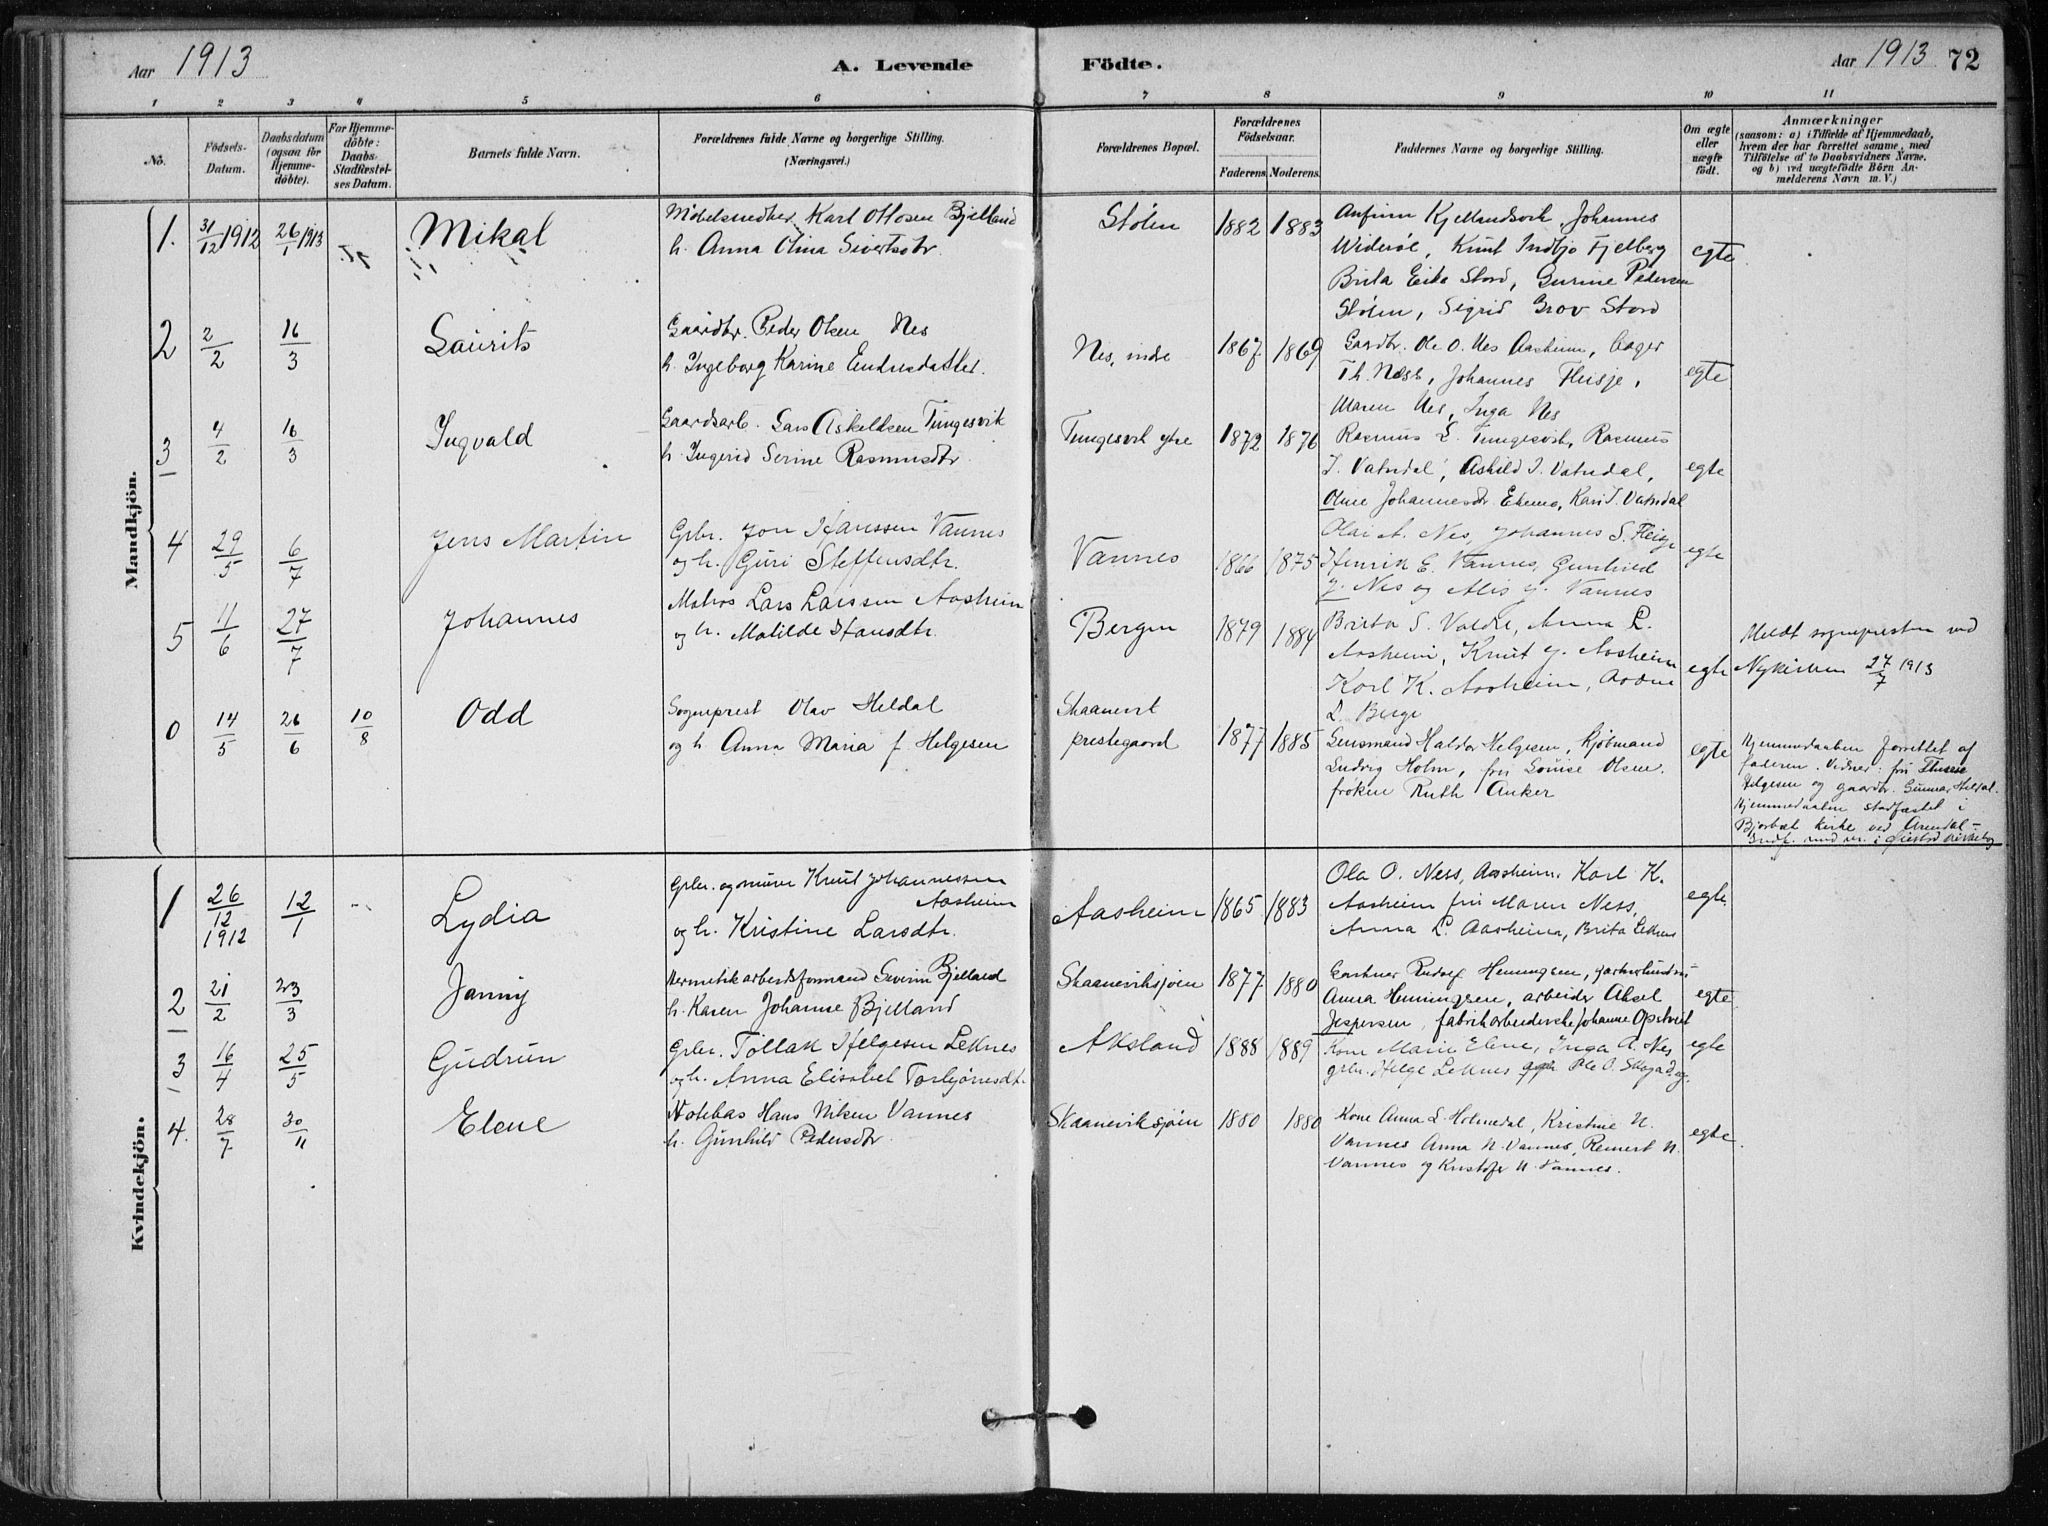 Aar 1913
A. Levende Födte.
Aar 1913 72
1 2 3 4 5 6 7 8 9 10 11
No.
Födsels-Datum.
Daabsdatum (ogsaa for Hjemme-döbte).
For Hjemme-döbte: Daabs-Stadfæstel-ses Datum.
Barnets fulde Navn.
Forældrenes fulde Navne og borgerlige Stilling. (Næringsvei.)
Forældrenes Bopæl.
Forældrenes Födselsaar.
Faderens Moderens
Faddernes Navne og borgerlige Stilling.
Om ægte eller uægte födt.
Anmærkninger
(saasom: a) i Tilfælde af Hjemmedaab,
hvem der har forrettet samme, med
Tilföielse af to Daabsvidners Navne.
og b) ved uægtefödte Börn An-
melderens Navn m. V.)
Mandkjön.
1. 31/12 1912 26/1 1913 Mikal
Möbelsnedker Karl Ottosen Bjelland
h. Anna Olina Sivertsdtr.
Stölen 1882 1883
Anfinn Kjellandsvik, Johannes
Wideröe, Knut Indbjo Fjelberg
Brita Eike Stord, Gurine Pedersen
Stölen, Sigrid Grov Stord
egte
2 2/2 16/3 Laurits
Gaardbr. Peder Olsen Nes
h. Ingeborg Karine Endresdatter.
Nes, indre 1867 1869
Gaardbr. Ole O. Nes Aasheim, bager
Th. Ness, Johannes Fleisje,
Maren Nes, Inga Nes
egte
3 4/2 16/3 Ingvald
Gaardsarb. Lars Askeldsen Tungesvik
h. Ingerid Serine Rasmusdtr.
Tungesvik ytre 1872 1876
Rasmus L. Tungesvik, Rasmus
I. Vatndal, Askild I. Vatndal,
Oline Johannesdtr. Ekemo, Kari I. Vatndal
egte
4 29/5 6/7 Jens Martin
Grbr. Jon Hanssen Vannes
og h. Guri Steffensdtr.
Vannes 1866 1875
Olai A. Nes, Johannes S. Fleisje
Henrik E. Vannes, Gunhild
J. Nes og Alis J. Vannes
egte
5 11/6 27/7 Johannes
Matros Lars Larssen Aasheim
og h. Matilde Hansdtr.
Bergen 1879 1884
Brita S. Valdre, Anna L.
Aasheim, Knut J. Aasheim
Karl K. Aasheim,
L. Berge
egte
Meldt sognepresten ved
Nykirken 27/7 1913
0 14/5 26/6 10/8 Odd
Sogneprest Olav Heldal
og h. Anna Maria f Helgesen
Skaanevik
prestegaard 1877 1885
Lensmand Haldor Helgesen, kjöbmand
Ludvig Holm, fru Louise Olsen.
fröken Ruth Anker
egte
Hjemmedaaben forrettet af
faderen. Vidner: fru
Helgesen og gaardbr. Gunnar Heldal.
Hjemmedaaben stadfæstet i
Bjorbæk kirke ved Arendal –
Indf. med nr. i Öiestad kirkebog
Kvindekjön.
1 26/12 1912 12/1 Lydia
Grbr. og murer Knut Johannessen
Aasheim
og h. Kristine Larsdtr.
Aasheim 1865 1883
Ola O. Ness, Aasheim. Karl K.
Aasheim fru Maren Ness,
Anna L. Aasheim, Brita Leknes
egte.
2 21/2 23/3 Janny
Hermetikarbeidsformand Severin Bjelland
h. Karen Johanne Bjelland
Skaaneviksjöen 1877 1880
Gartner Ludvig Henningsen,
Anna Henningsen, arbeider Aksel
Jespersen, fabrikarbeiderske Johanne Opstveit
egte
3 16/4 25/5 Gudrun
Grbr. Tollak Helgesen Leknes
og h. Anna Elisabet Torbjörnsdtr.
Aksland 1888 1889
Kone Marie Elene, Inga A. Nes
grbr. Helge Leknes Ole O.
egte
4. 28/7 30/11 Elene
Notebas Hans Nilsen Vannes
h. Gunhild Pedersdtr
Skaaneviksjöen 1880 1880
Kone Anna L. Holmedal, Kristine N.
Vannes Anna N. Vannes, Reinert N.
Vannes og Kristofer N. Vannes.
egte.